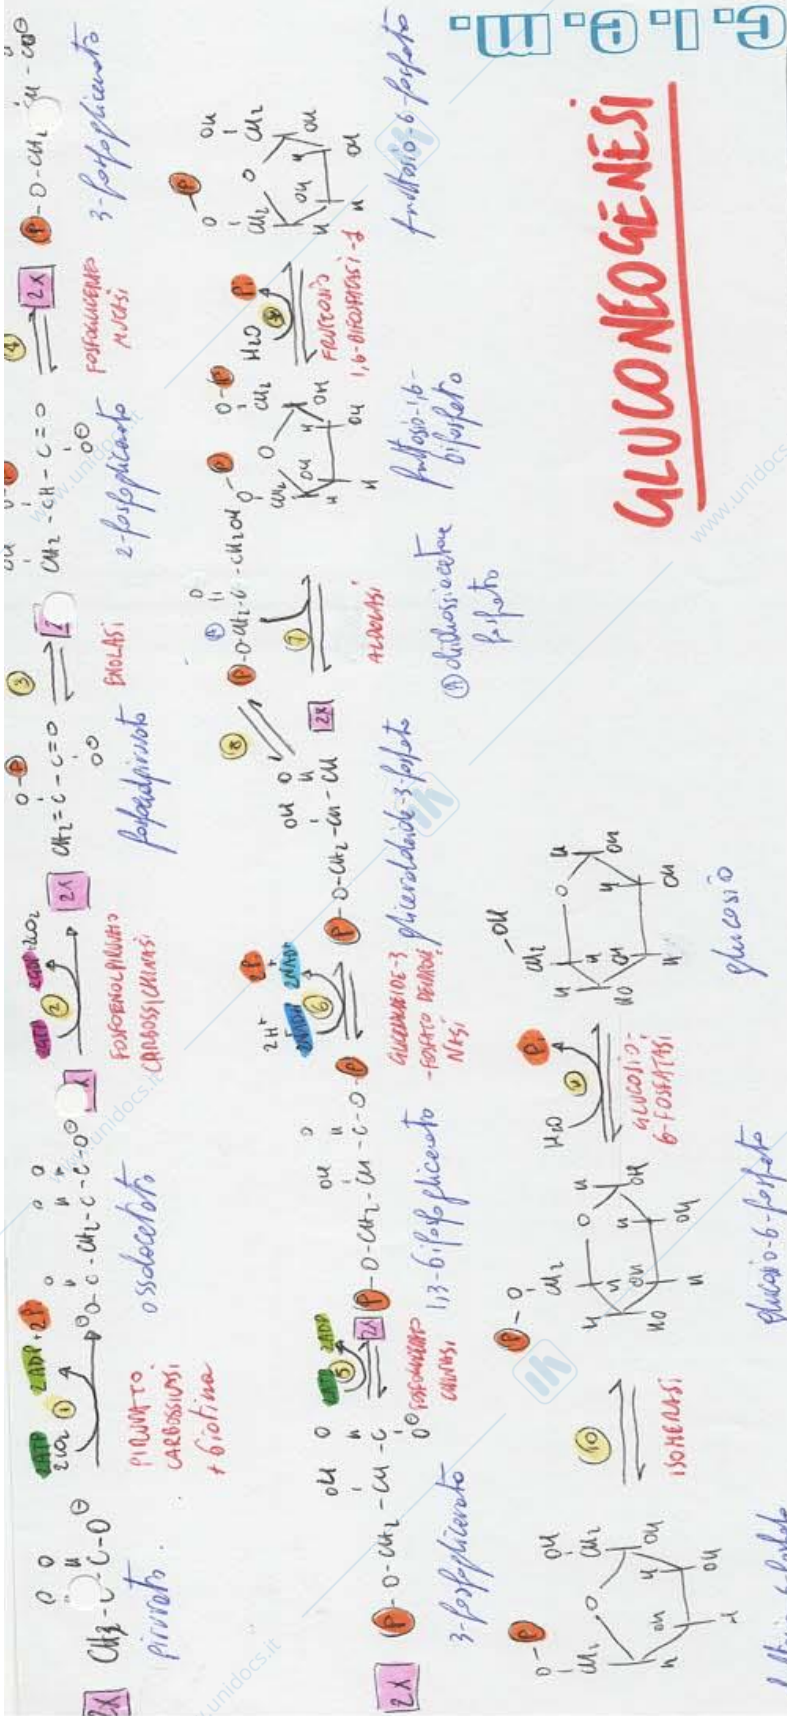 c.l.e.m.
GLUCONEOGENESI
2X
CH3-C-C-O⊖
piruvato
2ATP
2CO2
2ADP + 2Pi
1
PIRUVATO
CARBOSSILASI
+ biotina
⊖O-C-CH2-C-C-O⊖
ossalacetato
2GTP
2GDP+2CO2
2
FOSFOENOLPIRUVATO
CARBOSSICHINASI
2X
O-P
CH2=C-C=O
O⊖
fosfoenolpiruvato
3
ENOLASI
CH2-CH-C=O
O⊖
2-fosfoglicerato
4
2X
FOSFOGLICERATO
MUTASI
P-O-CH2
3-fosfoglicerato
2X
P-O-CH2-CH-C
O⊖
3-fosfoglicerato
2ATP
2ADP
5
2X
FOSFOGLICERATO
CHINASI
P-O-CH2-CH-C-O-P
1,3-bifosfoglicerato
2H+
2NADH
2Pi
+
2NAD+
6
GLICERALDEIDE-3
-FOSFATO DEIDROGE
NASI
P-O-CH2-CH-CH
gliceraldeide-3-fosfato
8
2X
A
P-O-CH2-C-CH2OH
7
ALDOLASI
A diidrossiacetone
fosfato
fruttosio-1,6-
bifosfato
H2O
Pi
FRUTTOSIO
1,6-BIFOSFATASI-1
fruttosio-6-fosfato
10
ISOMERASI
glucosio-6-fosfato
H2O
Pi
GLUCOSIO-
6-FOSFATASI
glucosio
www.unidocs
www.unidocs
www.unidocs.it
www.unidocs.it